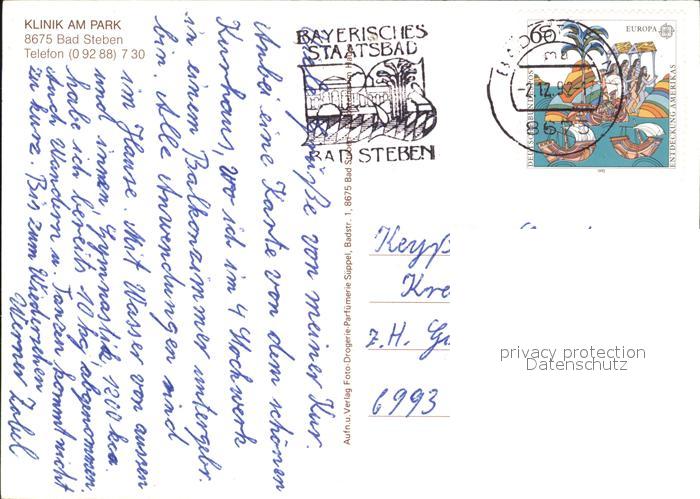 KLINIK AM PARK
8675 Bad Steben
Telefon (0 92 88) 7 30
BAYERISCHES
STAATSBAD
BAD STEBEN
-2.12.92-
8675
60
EUROPA
DEUTSCHE BUNDESPOST
ENTDECKUNG AMERIKAS
1992
Grüße von meiner Kur.
Anbei eine Karte von dem schönen
Kurhaus, wo ich im 4 Stockwerk
in einem Balkonzimmer untergebr.
bin. Alle Anwendungen sind
im Hause. Mit Wasser von aussen
und innen, Gymnastik, 1200 kca.
habe ich bereits 10 kg abgenommen.
Auch Wandern u. Tanzen kommt nicht
zu kurz. Bis zum Wiedersehen
Werner Zabel
Aufn. u. Verlag Foto-Drogerie-Parfümerie Süppel, Badstr. 1, 8675 Bad
z.H.
6993
privacy protection
Datenschutz